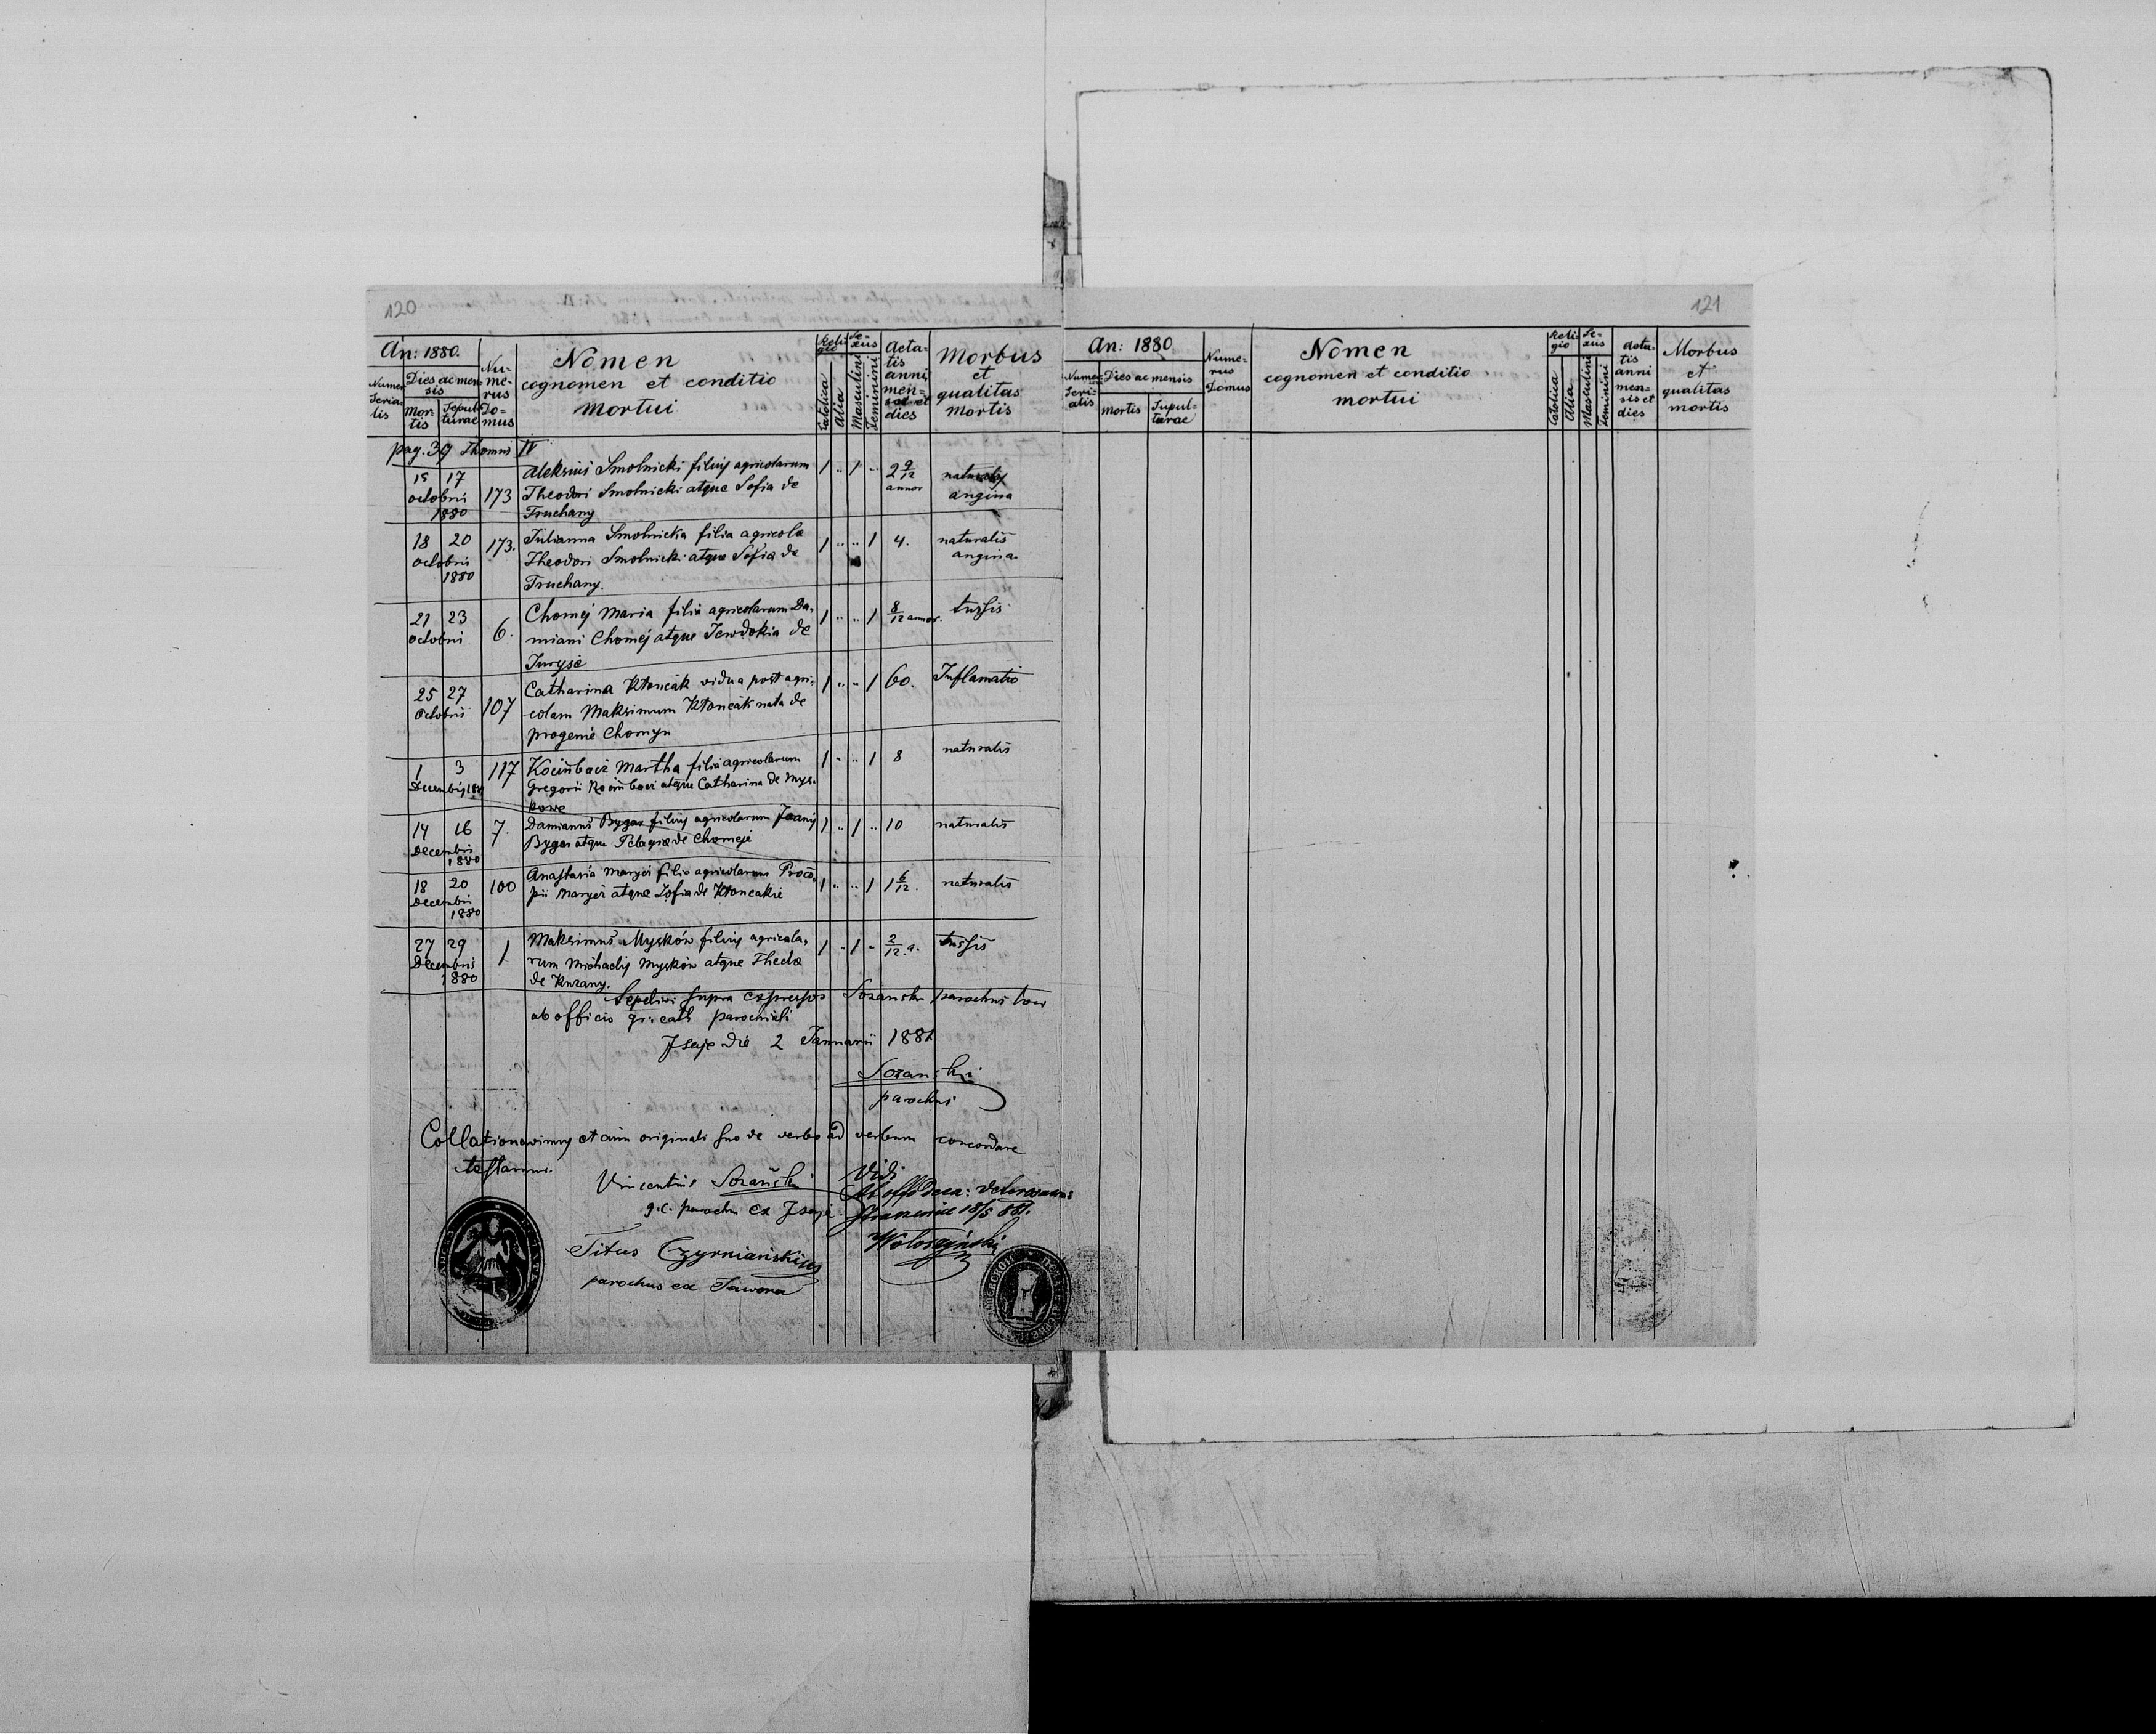 120
An: 1880.
Numerus Serialis
Dies ac mensis
Mortis
Sepulturae
Numerus Domus
Nomen
cognomen et conditio
mortui
Religio
Catolica
Alia
Sexus
Masculini
Feminini
Aetatis anni, mensis et dies
Morbus
et
qualitas
mortis
pag. 39 Thomus IV
15 17 octobris 1880 173 Aleksius Smolnicki filius agricolarum 1 .. 1 .. 2 9/12 annor naturalis
Theodori Smolnicki atque Sofia de angina
Truchany
18 20 octobris 1880 173. Julianna Smolnicka filia agricolae 1 .. .. 1 4. naturalis
Theodori Smolnicki atque Sofia de angina
Truchany.
21 23 octobris 6. Chomej Maria filia agricolarum Da- 1 .. .. 1 8/12 annor. tussis
miani Chomej atque Jewdokia de
25 27 octobris 107 Catharina Kłoncák vidua post agri- 1 .. .. 1 60. Inflamatio
colam Maksimum Kłoncák nata de
progenie Chomyn
1 3 Decembris 117 Martha filia agricolarum 1 .. .. 1 8 naturalis
Gregorii atque Catharina de Mys-
kowe
14 16 Decembris 1880 7. Damianus Bygar filius agricolarum Joanis 1 .. 1 .. 10 naturalis
Bygar atque Pelagiae de Chomeji
18 20 Decembris 1880 100 Anastasia filia agricolarum Proco- 1 .. .. 1 1 6/12. naturalis
pii atque Zofia de
27 29 Decembris 1880 1 Maksimus Myśków filius agricola- 1 .. 1 .. 2/12 a. tussis
rum Michaelis Myśków atque Thecla
de
Sepelivi supra expressos Sozanski parochus loci
ab officio gr: cath parochiali
Isaje die 2 Januarii 1881
Sozanski
parochus
Collationavimus et cum originali suo de verbo ad verbum concordare
testamur.
Vincentius Sozański
g.c. parochus ex Isaje
Vidi
18/5 881.
Wołoszyński
Titus Czyrniański
parochus ex Jawora
121
An: 1880
Numerus Serialis
Dies ac mensis
mortis
Sepulturae
Numerus Domus
Nomen
cognomen et conditio
mortui
Religio
Catolica
Alia
Sexus
Masculini
Feminini
Aetatis anni mensis et dies
Morbus
et
qualitas
mortis